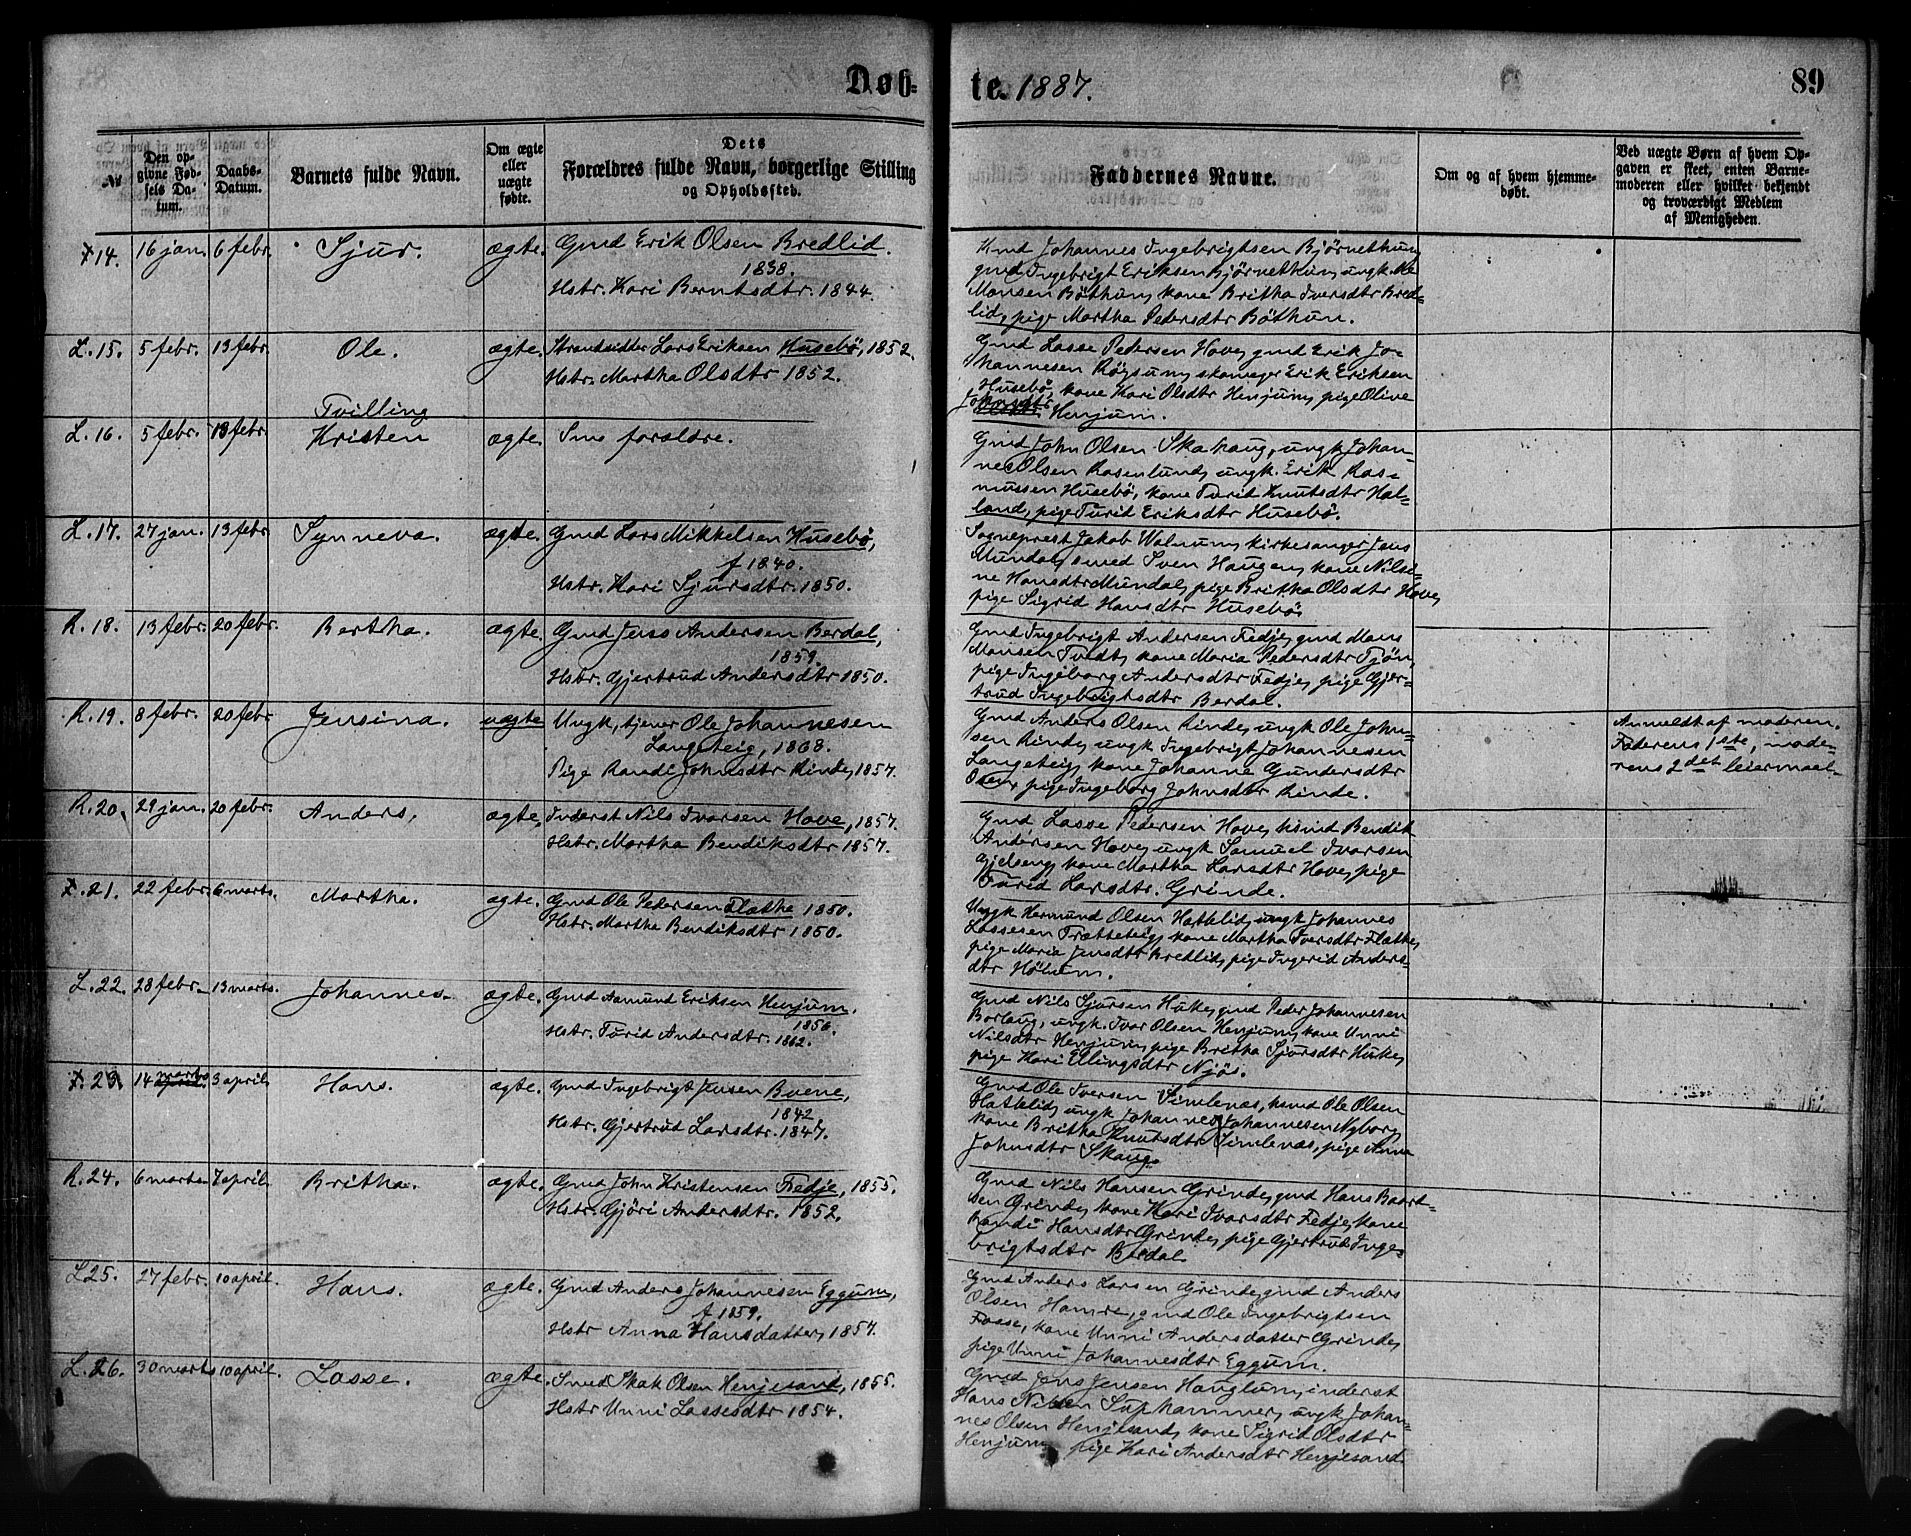 Døb=
te. 1887.
89
№
Den opgivne Fødsels Datum.
Daabs-Datum.
Barnets fulde Navn.
Om ægte eller uægte fødte.
Dets Forældres fulde Navn, borgerlige Stilling og Opholdssted.
Faddernes Navne.
Om og af hvem hjemmedøbt.
Ved uægte Børn af hvem Opgaven er skeet, enten Barnemoderen eller hvilket bekjendt og troværdigt Medlem af Menigheden.
14. 16 jan. 6 febr. Sjur. ægte. Gmd Erik Olsen Bredlid.
1838.
Hstr. Kari Berntsdtr. 1844.
Kmd Johannes Ingebrigtsen Bjørnethun,
gmd Ingebrigt Eriksen Bjørnethun, ungk.
Monsen Böthun, kone Britha Iversdtr Bred-
lid, pige Martha Pedersdtr Böthun.
L. 15. 5 febr. 13 febr. Ole. ægte. Strandsidder Lars Eriksen Husebö, 1852.
Hstr. Martha Olsdtr 1852.
Tvilling
Gmd Lasse Pedersen Hove, gmd Erik Jo-
hannesen Röysum, skomager Erik Eriksen
Husebö, kone Kari Olsdtr Henjum, pige Olive
Johnsdtr Henjum.
L. 16. 5 febr. 13 febr. Kristen ægte. Sms forældre.
Gmd John Olsen Skahaug, ungk Johan-
nes Olsen Rosenlund, ungk. Erik Ras-
mussen Husebö, kone Turid Knutsdtr Hal-
land, pige Turid Eriksdtr Husebö.
L. 17. 27 jan. 13 febr. Synneva. ægte. Gmd Lars Mikkelsen Husebö,
f 1840.
Hstr. Kari Sjursdtr. 1850.
Sogneprest Jakob Walnum, kirkesanger Jens
Mundal, smed Sven Haugen, kone Nilsi-
ne Hansdtr Mundal, pige Britha Olsdtr Hove,
pige Sigrid Hansdtr Husebö
R. 18. 13 febr. 20 febr. Bertha. ægte. Gmd Jens Andersen Berdal,
1859.
Hstr. Gjertrud Andersdtr 1850.
Gmd Ingebrigt Andersen Fedje, gmd Mons
Monsen Tvedt, kone Maria Pedersdtr Tjön,
pige Ingeborg Andersdtr Fedje, pige Gjer-
trud Ingebrigtsdtr Berdal.
R. 19. 8 febr. 20 febr Jensina. uægte Ungk, tjener Ole Johannesen
Langeteig, 1868.
Pige Randi Johnsdtr Rinde, 1857.
Gmd Anders Olsen Rinde, ungk Ole John-
sen Rinde, ungk Ingebrigt Johannesen
Langeteig, kone Johanne Gundersdtr
Osen, pige Ingeborg Johnsdtr Rinde.
Anmeldt af moderen.
Faderens 1ste, mode-
rens 2det leiermaal.
R. 20. 29 jan. 20 febr. Anders. ægte. Inderst Nils Ivarsen Hove, 1857.
Hstr. Martha Bendiksdtr 1857.
Gmd Lasse Pedersen Hove, kmd Bendik
Andersen Hove, ungk Samuel Ivarsen
Gjelseng, kone Martha Larsdtr Hove, pige
Turid Larsdtr. Grinde.
21. 22 febr. 6 marts. Martha. ægte. Gmd Ole Pedersen Flathe 1850.
Hstr. Martha Bendiksdtr 1850.
Ungk Hermund Olsen Hattelid, ungk Johannes
Lassesen Trætteteig, kone Martha Iversdtr Flathe,
pige Maria Jensdtr Bredlid, pige Ingerid Anders-
dtr Hölum.
L. 22. 28 febr. 13 marts. Johannes. ægte. Gmd Aamund Eriksen Henjum,
1856.
Hstr. Turid Andersdtr. 1862.
Gmd Nils Sjursen Huke, gmd Peder Johannesen
Borlaug, ungk. Ivar Olsen Henjum, kone Unni
Nilsdtr Henjum, pige Britha Sjursdtr Huke,
pige Kari Ellingsdtr Njös.
23. 14 marts 3 april Hans. ægte. Gmd Ingebrigt Jensen Boene,
1842
Hstr. Gjertrud Larsdtr. 1847.
Gmd Ole Iversen Simlenæs, kmd Ole Olsen
Hattelid, ungk Johannes Johannesen Nyborg,
kone Britha Knutsdtr Simlenæs, pige Anna
Johnsdtr Skaug.
R. 24. 6 marts 7 april Britha. ægte. Gmd John Kristensen Fedje, 1855.
Hstr. Gjöri Andersdtr. 1852.
Gmd Nils Hansen Grinde, gmd Hans Baard-
sen Grinde, kone Kari Ivarsdtr Fedje, kone
Randi Hansdtr Grinde, pige Gjertrud Inge-
brigtsdtr Berdal
L 25. 27 febr. 10 april. Hans. ægte. Gmd Anders Johannesen Eggum,
f 1859.
Hstr Anna Hansdatter, 1857.
Gmd Anders Larsen Grinde, gmd Anders
Olsen Hamre, gmd Ole Ingebrigtsen
Fosse, kone Unni Andersdatter Grinde,
pige Unni Johannesdtr Eggum.
L. 26. 30 marts 10 april. Lasse. ægte. Smed Skak Olsen Henjesand, 1855.
Hstr Unni Lassesdtr 1854.
Gmd Jens Jensen Hauglum, inderst
Hans Nilsen Suphammer, ungk Johan-
nes Olsen Henjesand, kone Sigrid Olsdtr
Henjum, pige Kari Andersdtr Henjesand.